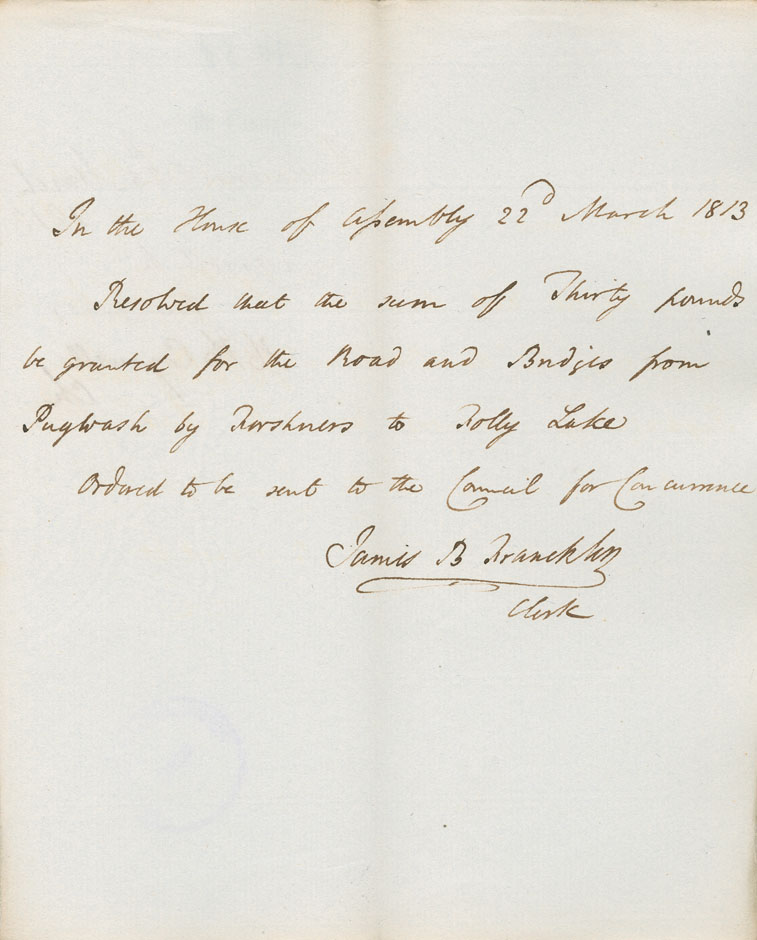 In the House of Assembly 22d March 1813
Resolved that the sum of Thirty pounds
be granted for the Road and Bridges from
Pugwash by Forshners to Folly Lake
Ordered to be sent to the Council for Concurrence
James B Franckly​n
Clerk